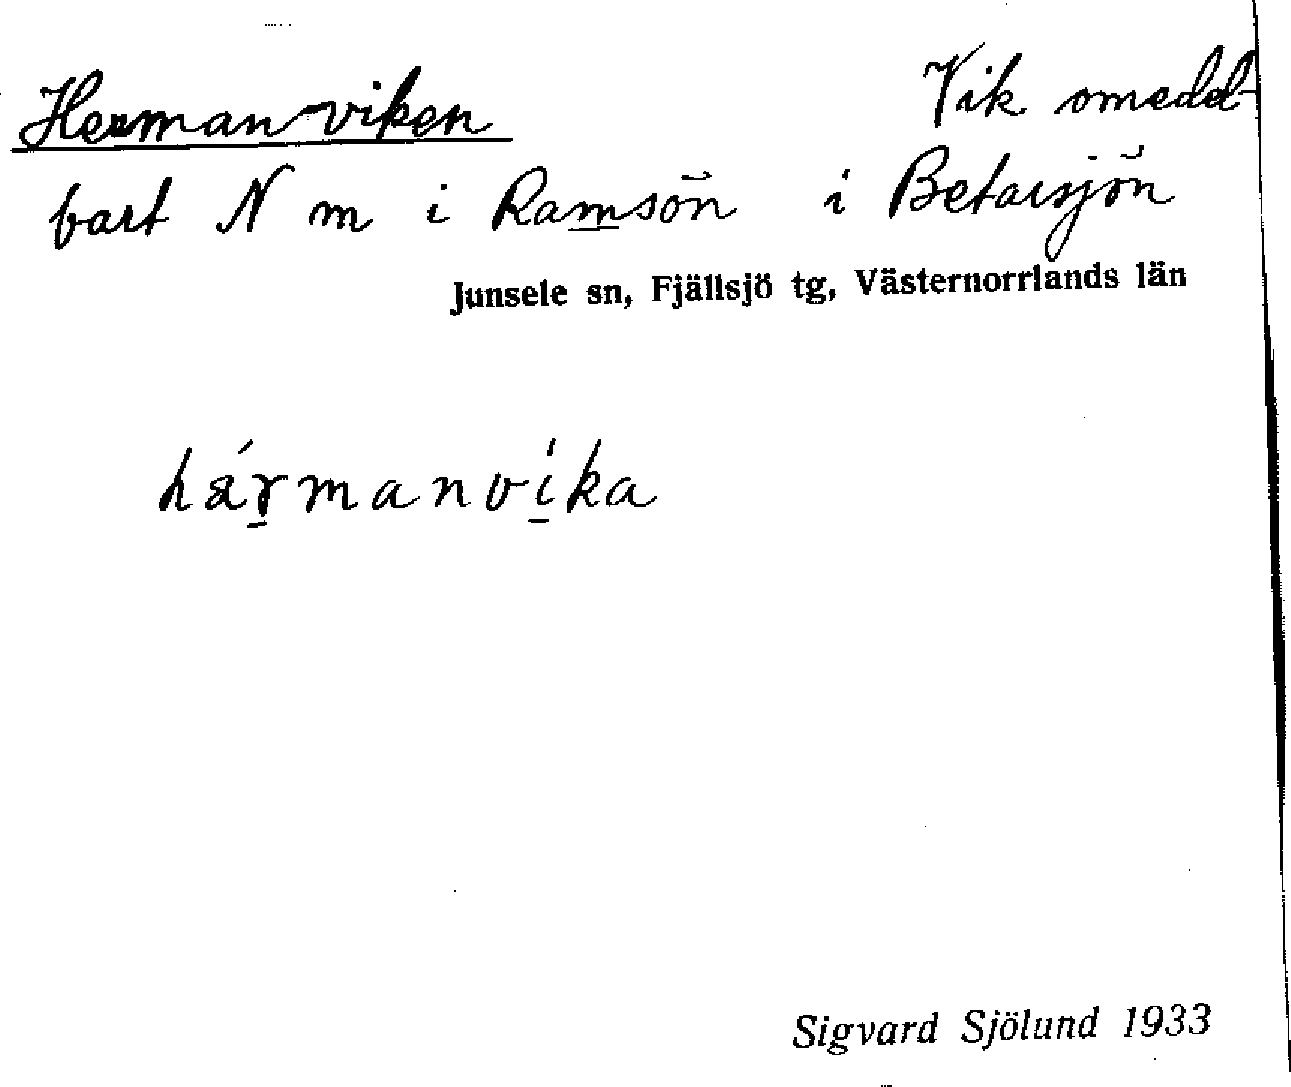 Hermanviken Vik omedel-
bart N m i Ramsön i Betarsjön
Junsele sn, Fjällsjö tg, Västernorrlands län
hármanvíka
Sigvard Sjölund 1933